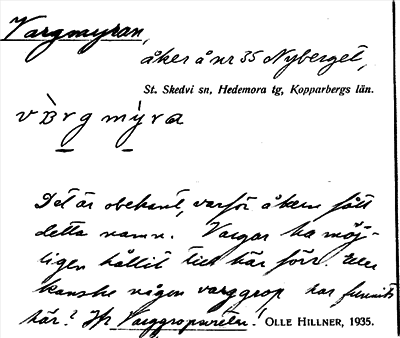 Vargmyran,
åker å nr 35 Nyberget,
St. Skedvi sn, Hedemora tg, Kopparbergs län.
vàrg mỳra
Det är obekant, varför åkern fått
detta namn. Vargar ha möj-
ligen hållit till här förr. Eller
kanske någon varggrop har funnits
här? Jfr Varggropsreten! OLLE HILLNER, 1935.